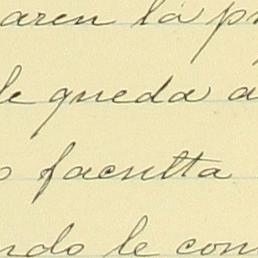 aren la p
le queda a
o faculta
ndo le con